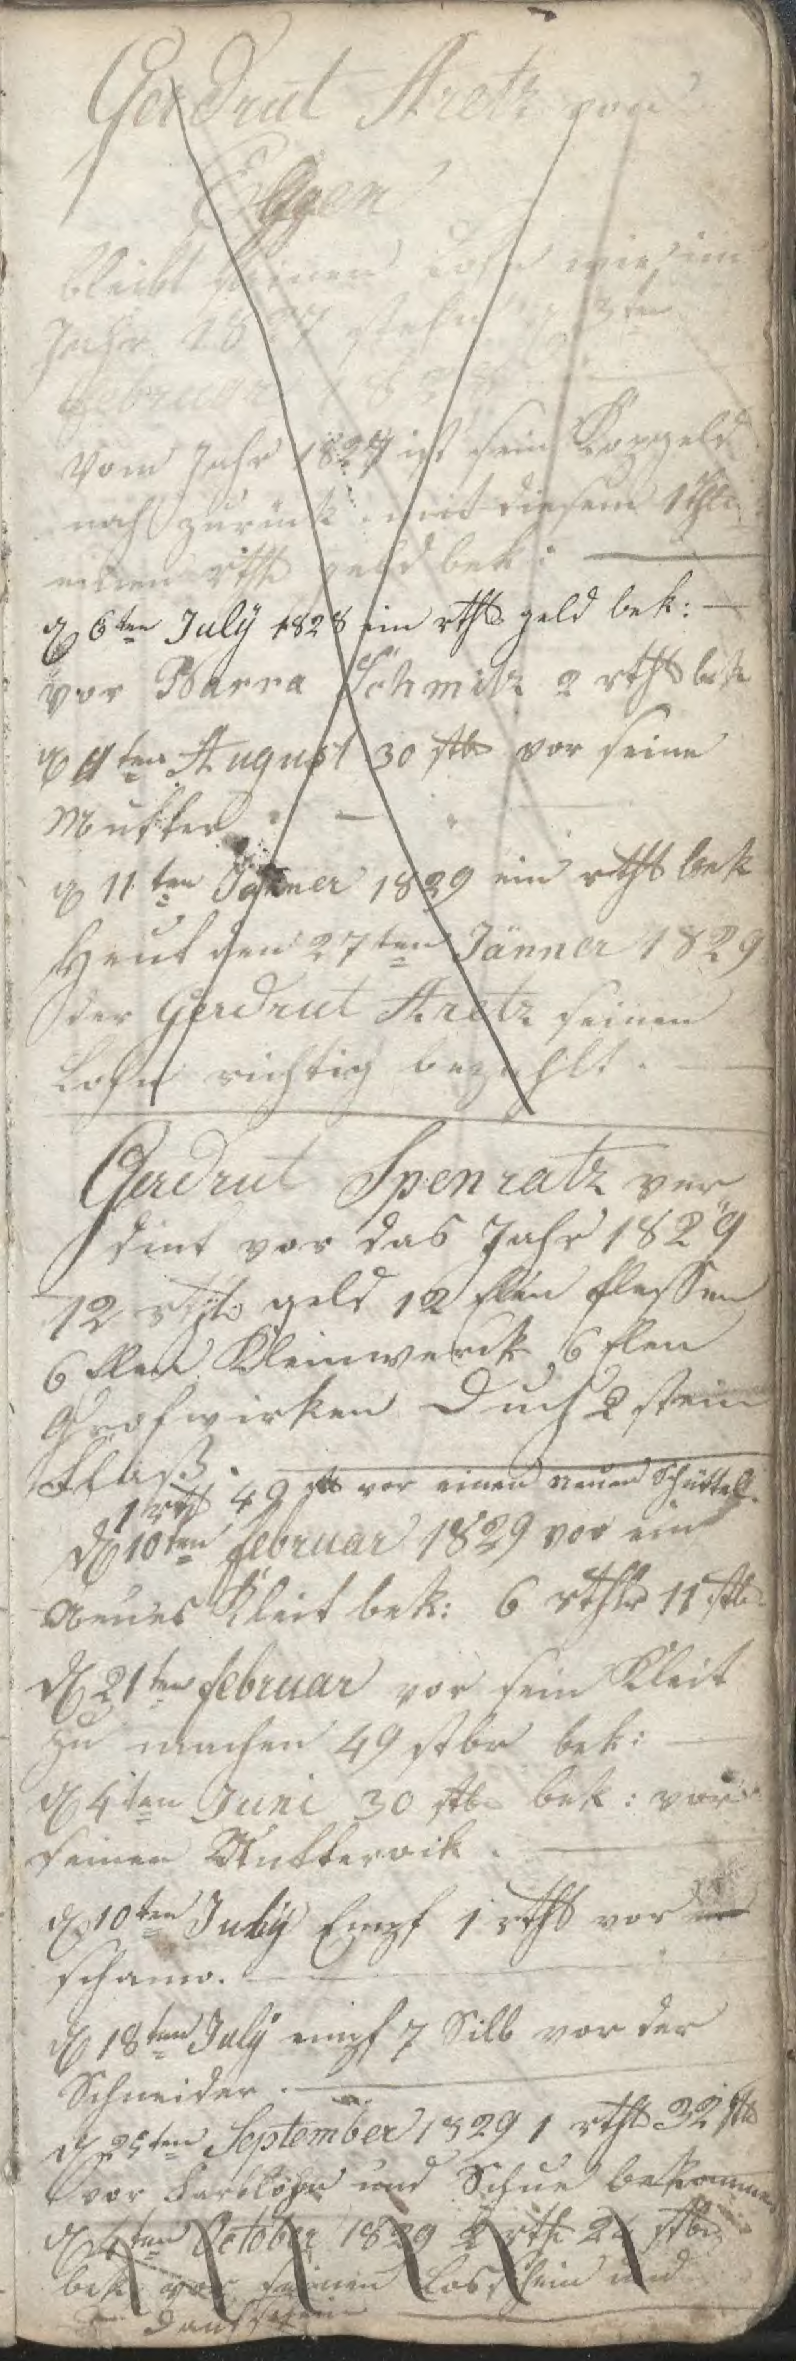 Gerdrut Aretz von
Eggen
bleibt seinen Lohn wie im
Jahr 1827 stehn 3ten
Februar 182
Vom Jahr 1827 ist sein
noch zurück mit diesem 1
einen rth geld bek:
d 6ten Julÿ 1828 ein rthl geld bek:
vor Barra Schmitz 2 rthl bek
d 4ten August 30 stb vor seine
Mutter
d 11ten Jänner 1829 ein rthl bek
Heut den 27ten Jänner 1829
der Gerdrut Aretz seinen
Lohn richtig bezahlt.
Gerdrut Spenratz ver
dint vor das Jahr 1829
12 rthl geld 12 Ellen flessen
6 Ellen Kleinwerck 6 Ellen
Grofwirken Duch 2 stein
Flaß.
1 rth 49 stb vor einen neuen
d 10ten Februar 1829 vor ein
neues Kleit bek: 6 rthlr 11 stb
d 21ten februar vor sein Kleit
zu machen 49 stbr bek:
d 4ten Juni 30 stb bek: vor
seinen
d 10ten Julÿ Empf 1 rthl vor
d 18ten Julÿ empf 7 Silb vor der
Schneider.
d 25ten September 1829 1 rthl 32 stb
vor und Schue bekommen
d 4ten October 1829 2 rth stb
bek vor seinen Losschein und